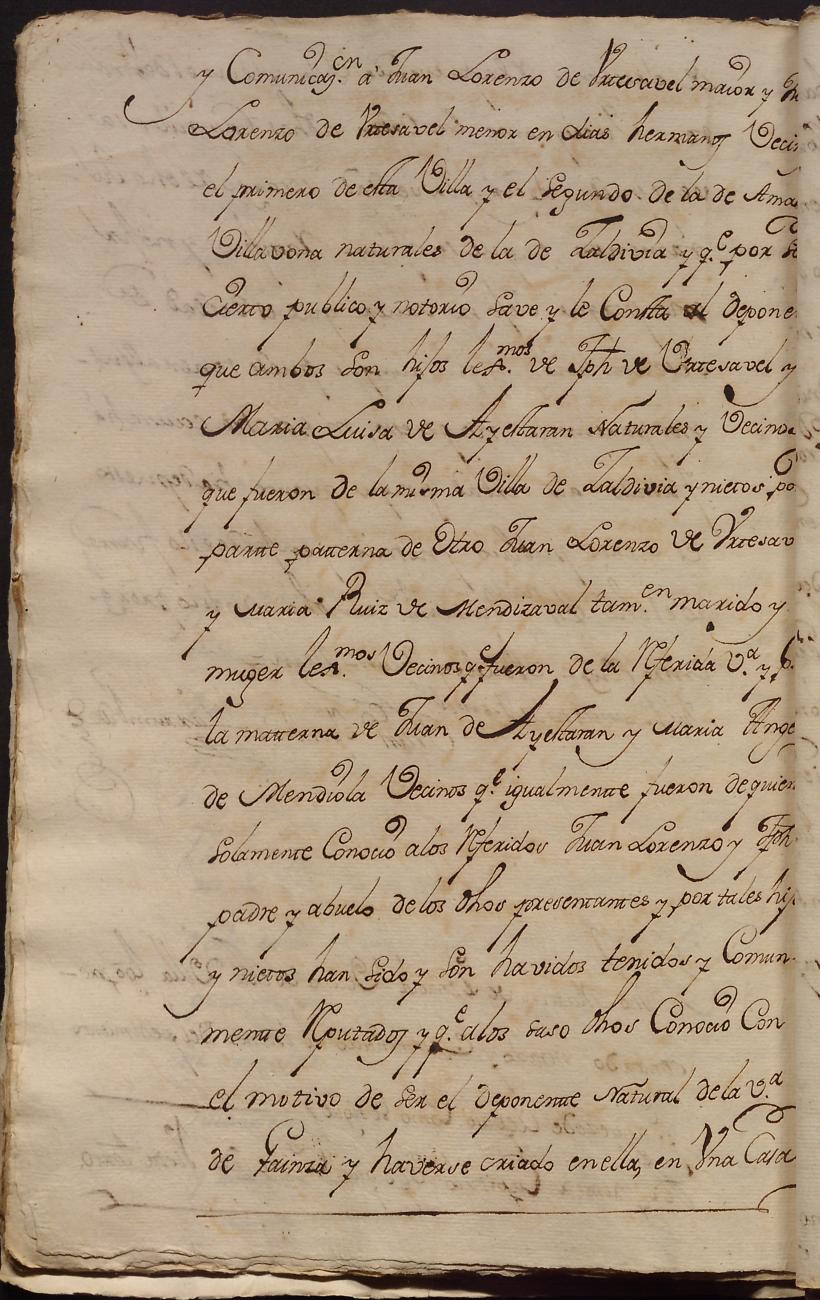 y Comunicaz.on a Juan Lorenzo de Vrtesavel maior y Ju
Lorenzo de Vrtesavel menor en dias hermanos Vecin
el primero de esta Villa y el segundo de la de Ama
Villavona naturales de la de Zaldivia y q.e por se
Cierto publico y notorio save y le Consta al depone
que ambos son hijos lex.mos de Jph de Vrtesavel y
Maria Luisa de Ayestaran Naturales y Vecinos
que fueron de la misma Villa de Zaldivia y nietos po
partte patterna de Otro Juan Lorenzo de Vrtesav
y Maria Ruiz de Mendizaval tam.en marido y
muger lex.mos Vecinos q.e fueron de la Referida V.a y p.
la matterna de Juan de Ayestaran y Maria Ange
de Mendiola Vecinos q.e igualmente fueron de quien
solamente Conocio a los Referidos Juan Lorenzo y Jph
padre y abuelo de los dhos presentantes y por tales hij
y nietos han sido y son havidos tenidos y Comun
mente Reputados y q.e a los suso dhos Conocio Con
el motivo de ser el deponente Natural de la V.a
de Gainza y haverse criado en ella, en Vna Casa